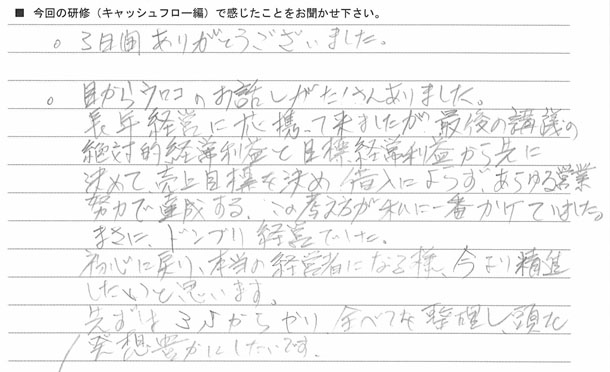 ■ 今回の研修（キャッシュフロー編）で感じたことをお聞かせ下さい。
。3日間ありがとうございました。
。目からウロコのお話しがたくさんありました。
長年経営に携って来ましたが、最後の講義の
絶対的経常利益と目標経常利益から先に
決めて、売上目標を決め借入によらず、あらゆる営業
努力で達成する、この考え方が私に一番かけていました。
まさに、ドンブリ経営でした。
初心に戻り、本当の経営者になる様、今より精進
したいと思います。
先ずは からやり、全べてを整理し、頭を
発想豊かにしたいです。